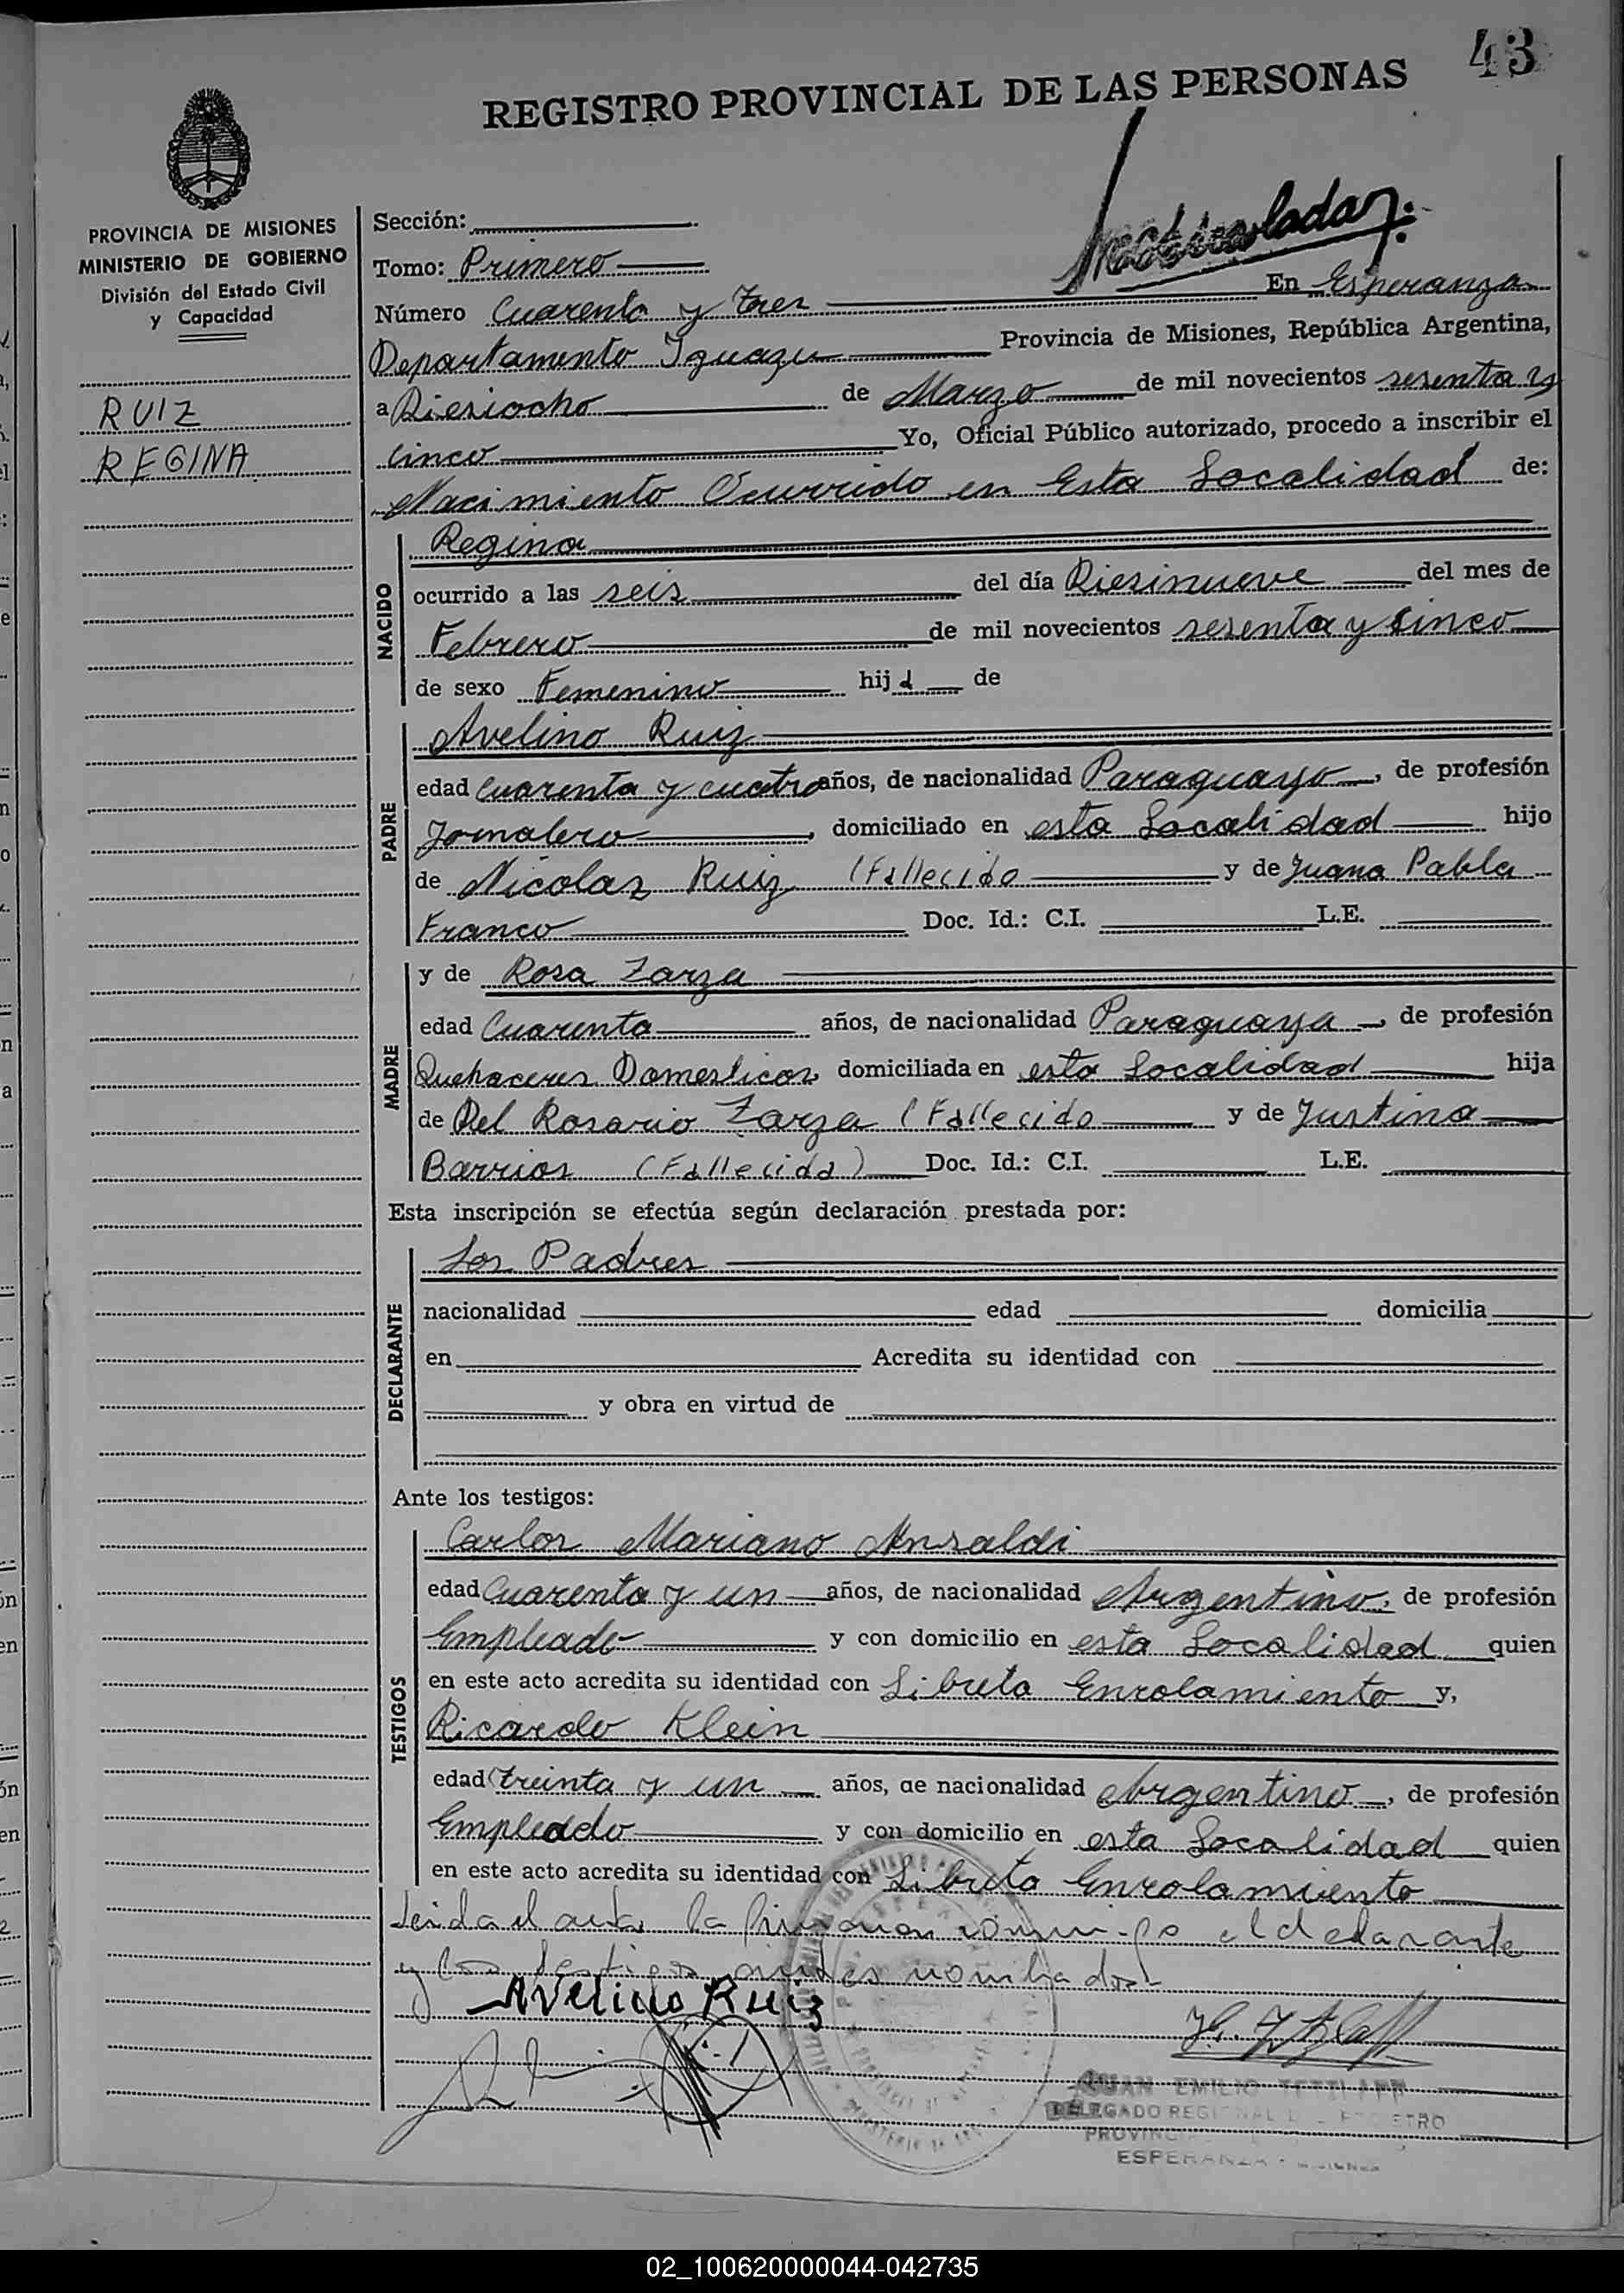 43
REGISTRO PROVINCIAL DE LAS PERSONAS
PROVINCIA DE MISIONES
MINISTERIO DE GOBIERNO
División del Estado Civil
y Capacidad
RUIZ
REGINA
Sección:
Tomo: Primero
Número Cuarenta y tres En Esperanza
Departamento Iguazu Provincia de Misiones, República Argentina,
a Diesiocho de Marzo de mil novecientos sesenta y
cinco Yo, Oficial Público autorizado, procedo a inscribir el
Nacimiento Ocurrido en Esta Localidad de:
NACIDO
Regina
ocurrido a las seis del día Diesinueve del mes de
Febrero de mil novecientos sesenta y cinco
de sexo Femenino hija de
PADRE
Avelino Ruiz
edad cuarenta y cuatro años, de nacionalidad Paraguayo, de profesión
Jornalero, domiciliado en esta Localidad hijo
de Nicolas Ruiz (Fallecido y de Juana Pabla
Franco Doc. Id.: C.I. L.E.
MADRE
y de Rosa Zarza
edad Cuarenta años, de nacionalidad Paraguaya, de profesión
Quehaceres Domesticos domiciliada en esta Localidad hija
de Del Rosario Zarza (Fallecido y de Justina
Barrios (Fallecida) Doc. Id.: C.I. L.E.
Esta inscripción se efectúa según declaración prestada por:
DECLARANTE
Los Padres
nacionalidad edad domicilia
en Acredita su identidad con
y obra en virtud de
Ante los testigos:
TESTIGOS
Carlos Mariano Ansaldi
edad Cuarenta y un años, de nacionalidad Argentino, de profesión
Empleado y con domicilio en esta Localidad quien
en este acto acredita su identidad con Libreta Enrolamiento y,
Ricardo Klein
edad treinta y un años, de nacionalidad Argentino, de profesión
Empleado y con domicilio en esta Localidad quien
en este acto acredita su identidad con Libreta Enrolamiento
Leida el acta la firman conmigo el declarante
y los testigos nombrados
Avelino Ruiz
JUAN EMILIO
DELEGADO
ESPERANZA
02_100620000044-042735